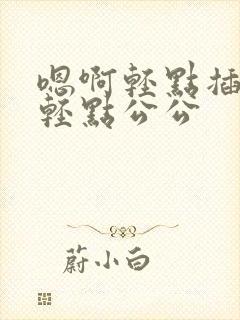 嗯啊輕點插
輕點公公
蔚小白